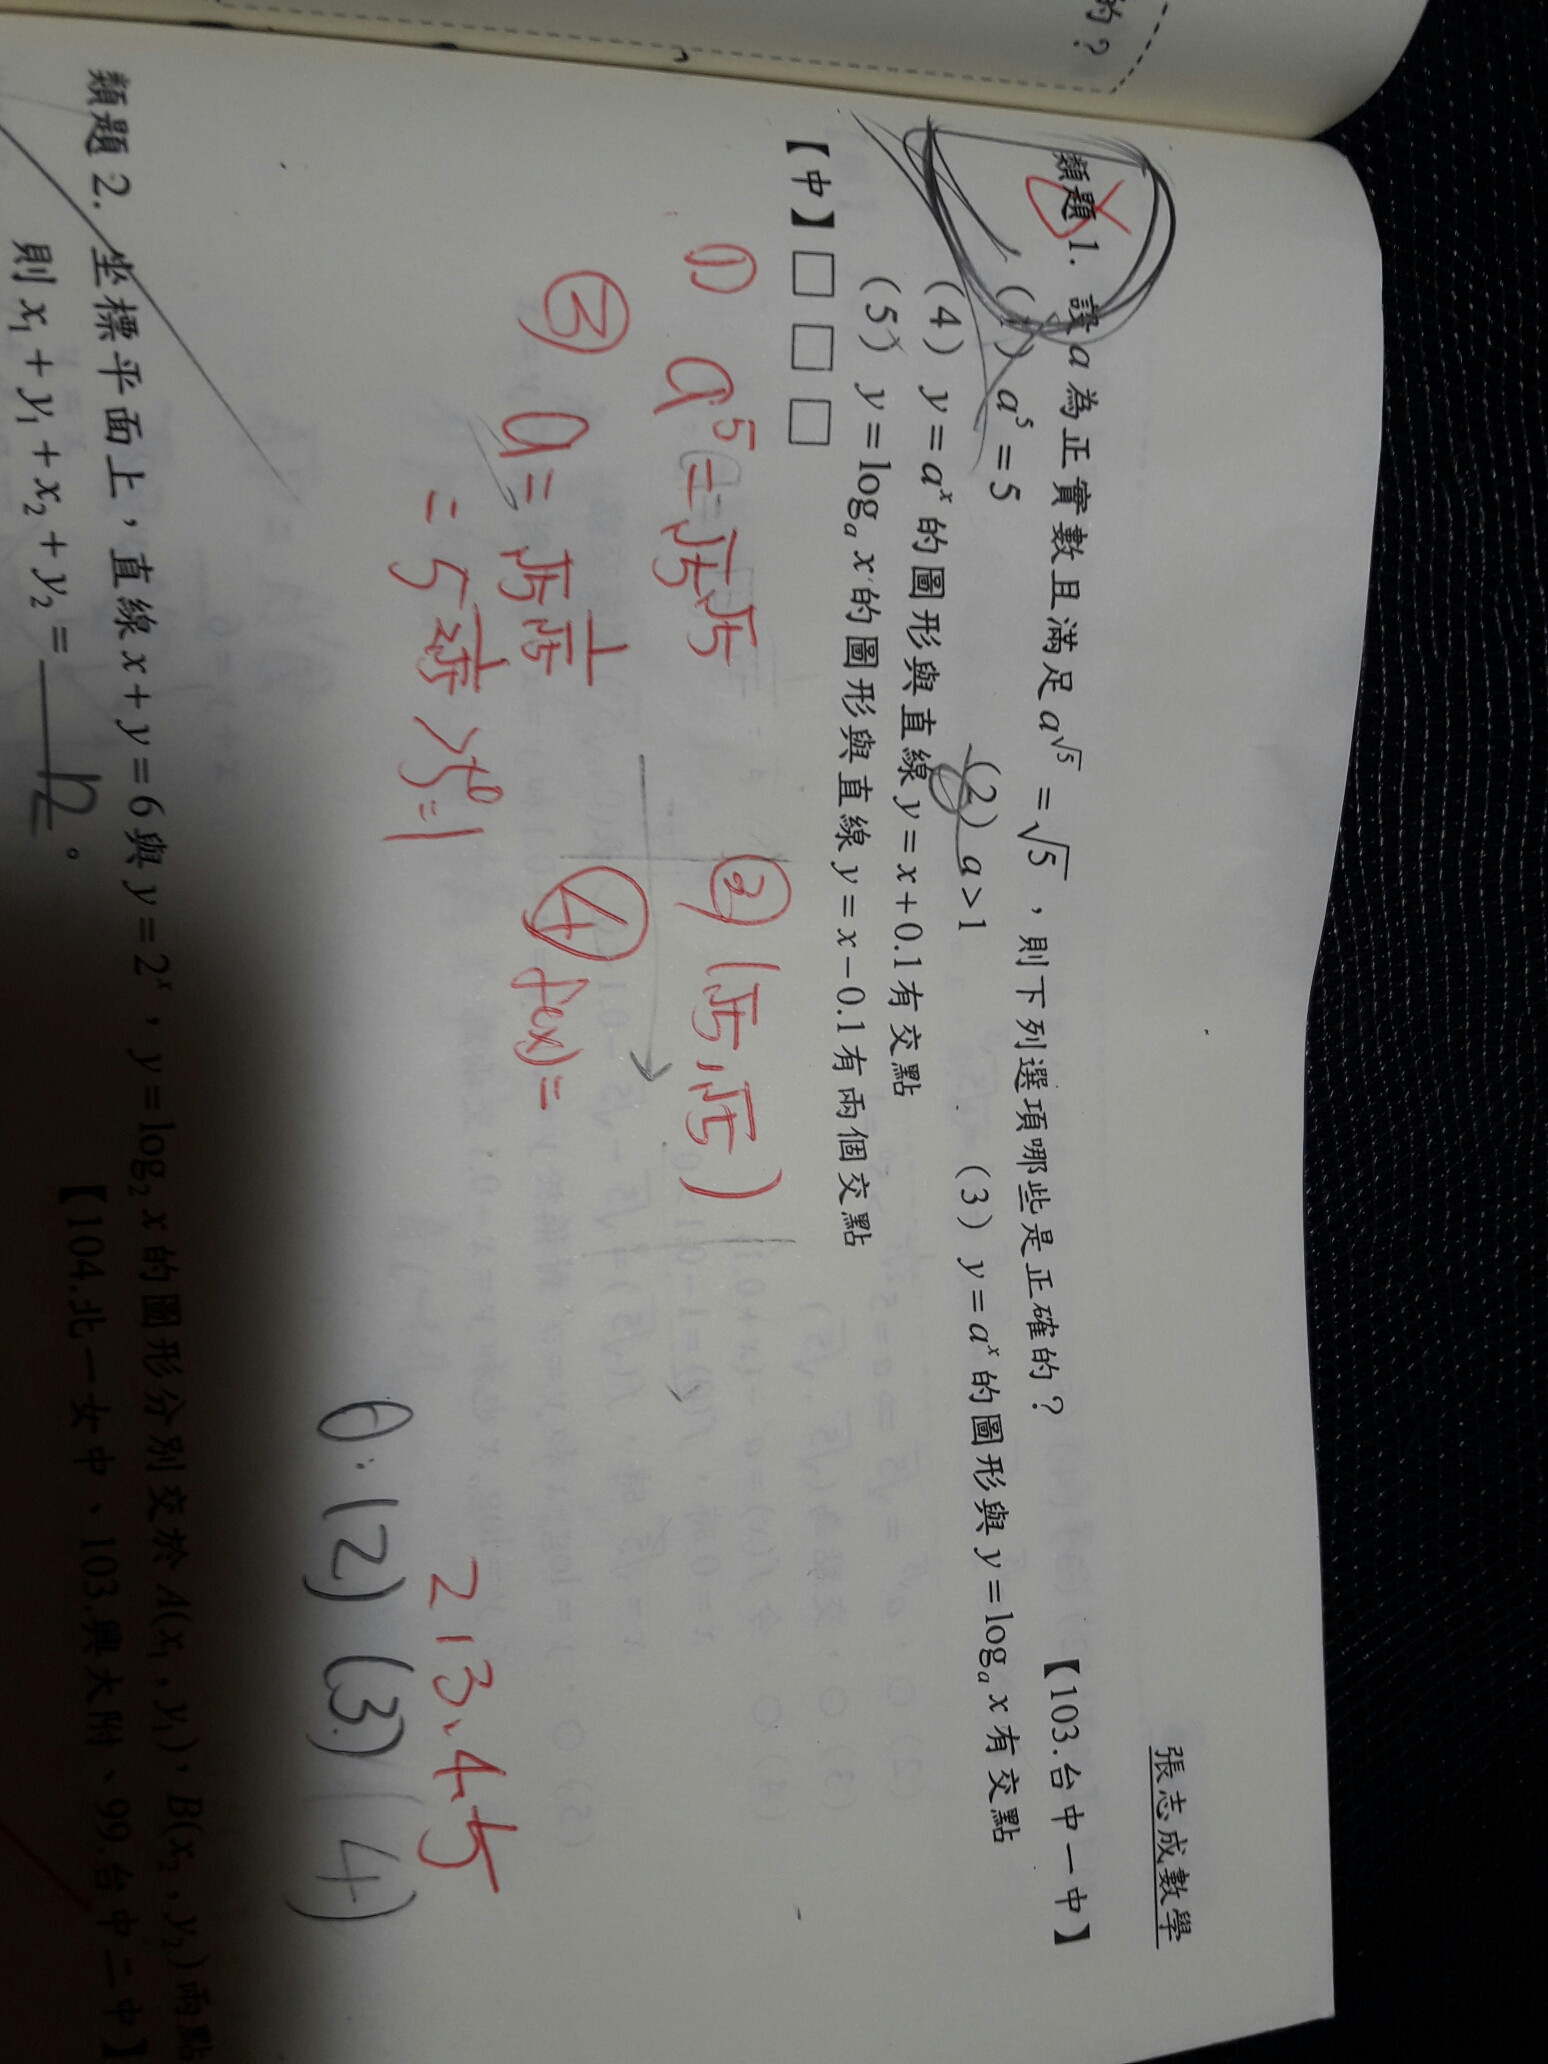 的？
張志成數學
類題 1. 設 a 為正實數且滿足 a^√5 = √5，則下列選項哪些是正確的？ 【103.台中一中】
(1) a^5 = 5 (2) a > 1 (3) y = a^x 的圖形與 y = log_a x 有交點
(4) y = a^x 的圖形與直線 y = x + 0.1 有交點
(5) y = log_a x 的圖形與直線 y = x − 0.1 有兩個交點
【中】□ □ □
(1) a^5 = √5^√5 ② (√5, √5)
③ a = √5^(1/√5) ④ f(x) =
= 5^(1/2√5) > 5^0 = 1
2, 3, 4, 5
A. (2) (3) (4)
類題 2. 坐標平面上，直線 x + y = 6 與 y = 2^x，y = log_2 x 的圖形分別交於 A(x_1, y_1)，B(x_2, y_2) 兩點
則 x_1 + y_1 + x_2 + y_2 = 12 。 【104.北一女中、103.興大附、99.台中二中】